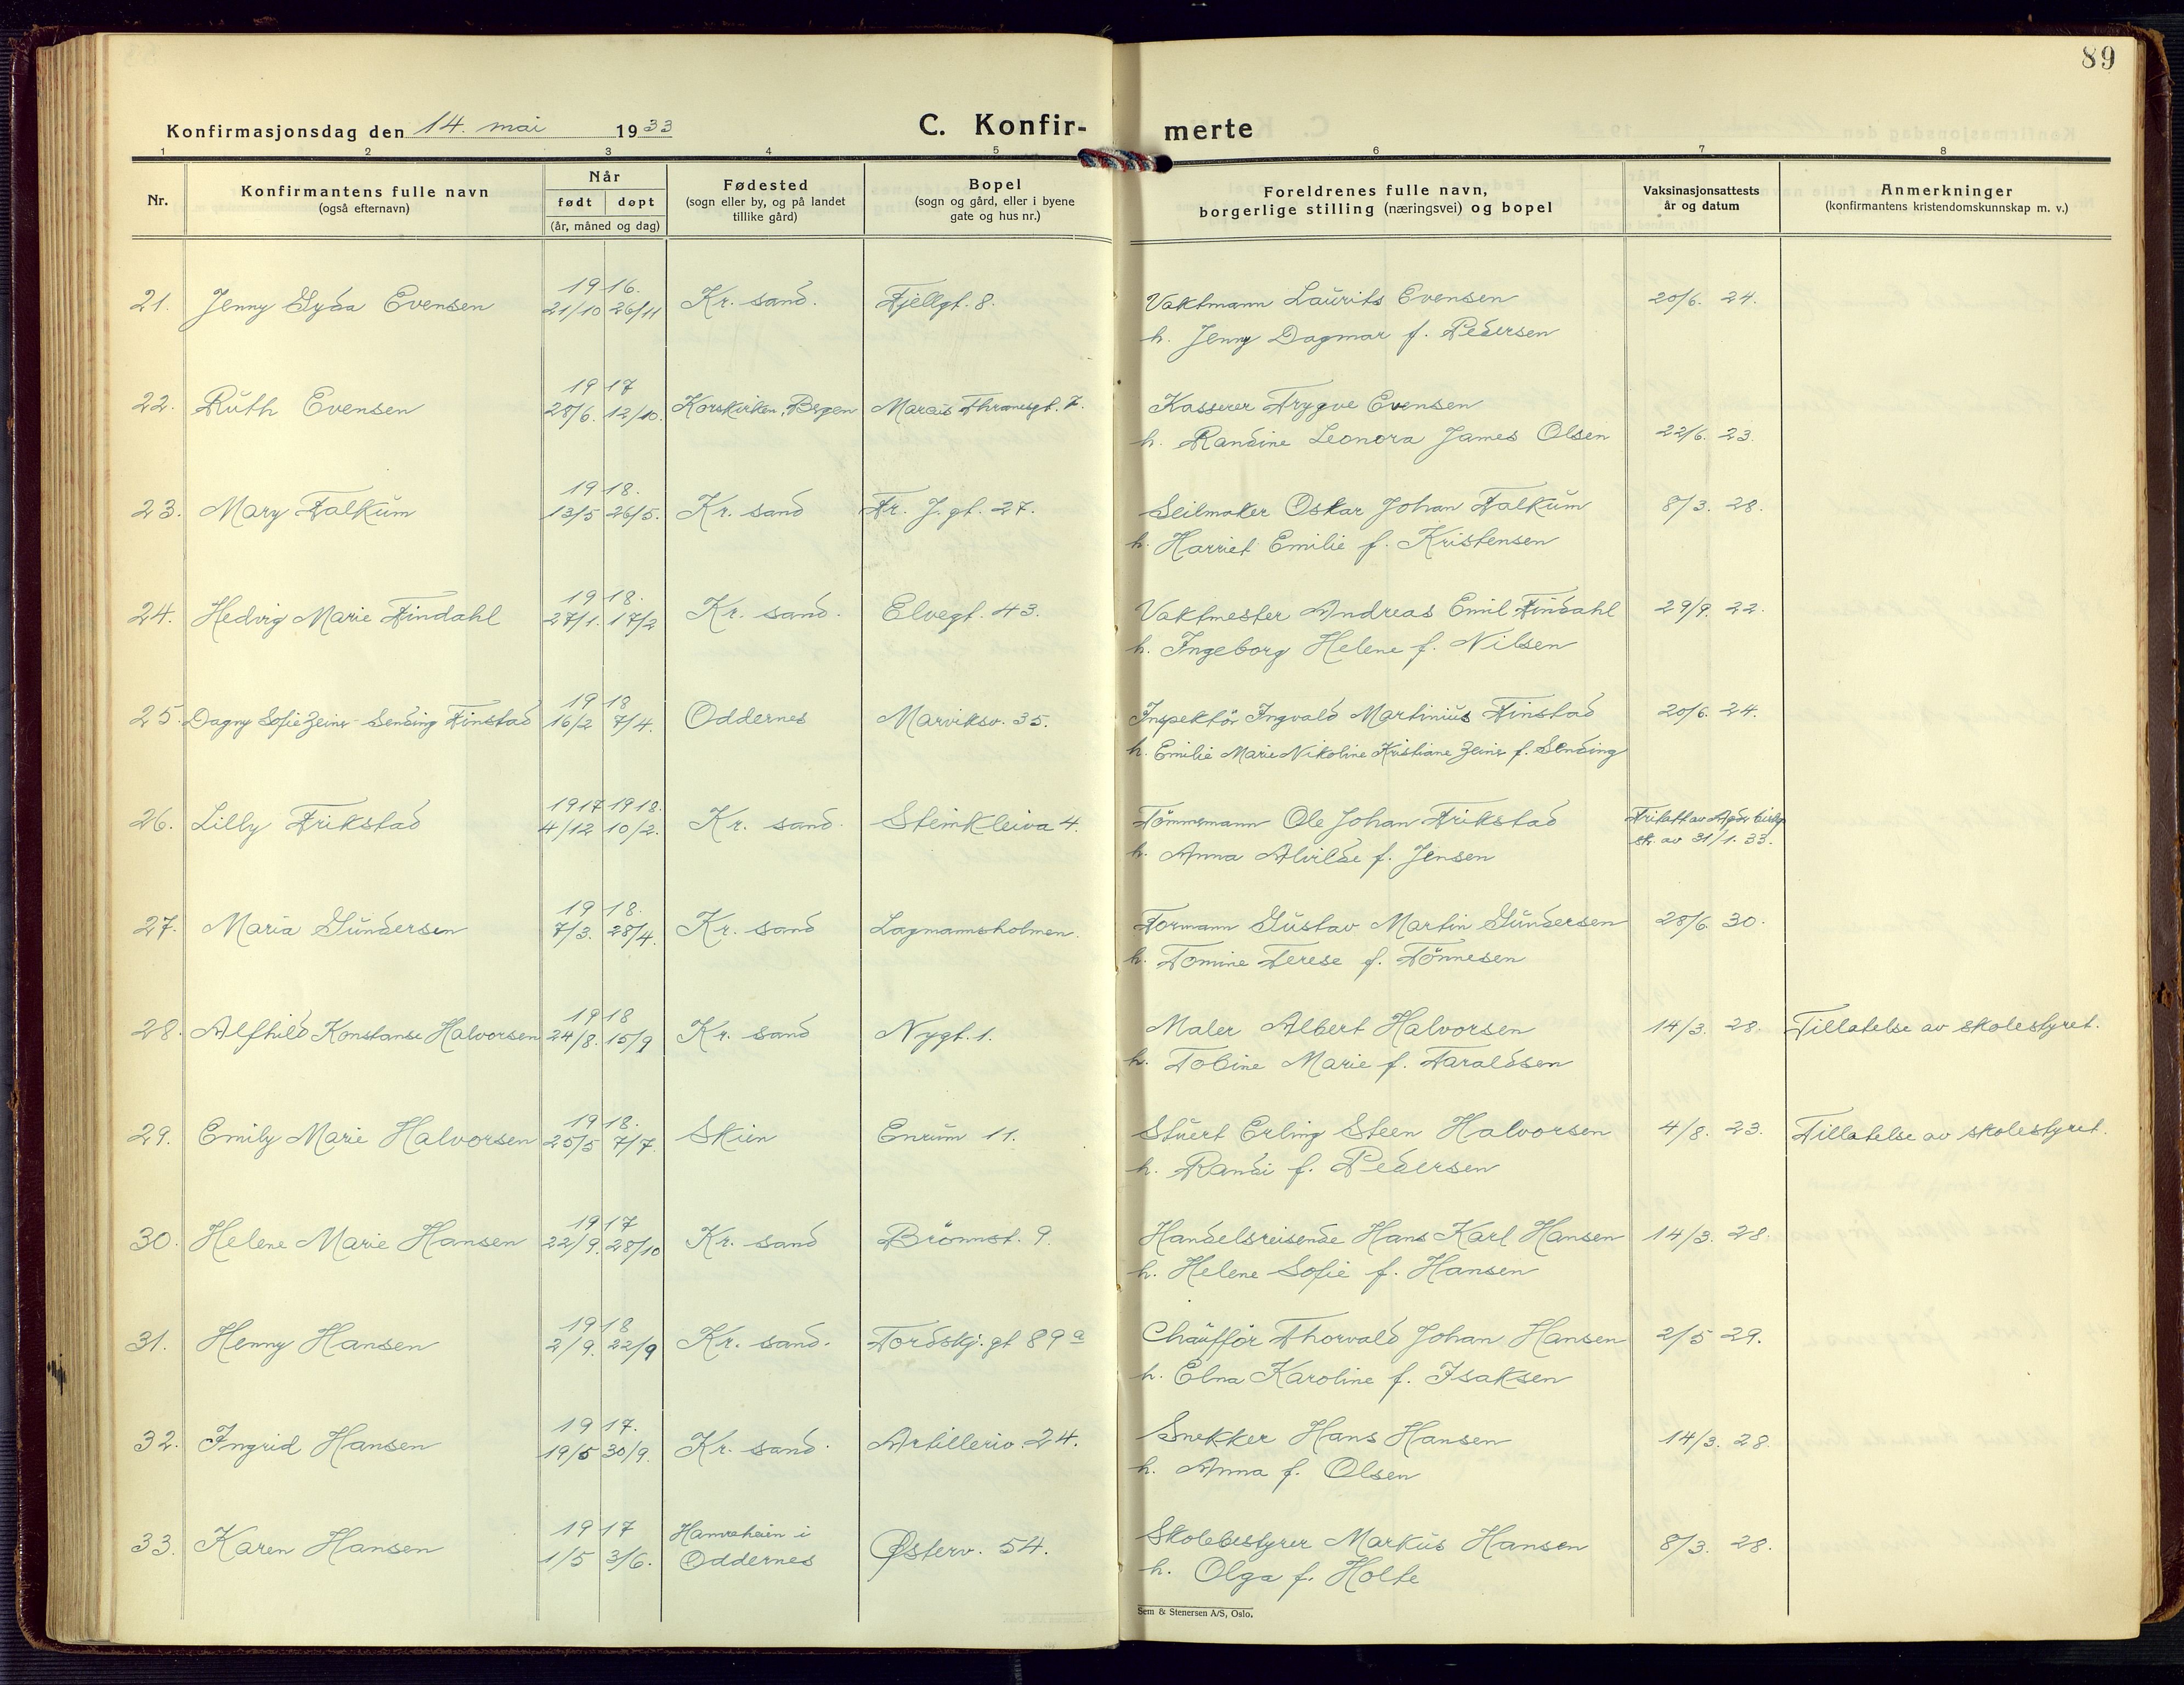 89
Konfirmasjonsdag den 14. mai 1933 C. Konfir- merte
1 2 3 4 5 6 7 8
Nr. Konfirmantens fulle navn (også efternavn) Når født døpt (år, måned og dag) Fødested (sogn eller by, og på landet tillike gård) Bopel (sogn og gård, eller i byene gate og hus nr.) Foreldrenes fulle navn, borgerlige stilling (næringsvei) og bopel Vaksinasjonsattests år og datum Anmerkninger (konfirmantens kristendomskunnskap m. v.)
1916.
21. Jenny Gyda Evensen 21/10 26/11 Kr. sand. Fjellgt. 8. Vaktmann Laurits Evensen 20/6. 24.
h. Jenny Dagmar f. Pedersen
1917
22. Ruth Evensen 28/6. 12/10. Korskirken, Bergen Marcus Thranesgt. 7. Kasserer Trygve Evensen
h. Randine Leonora James Olsen 22/6. 23.
1918.
23. Mary Falkum 13/5 26/5. Kr. sand Fr. J. gt. 27. Seilmaker Oskar Johan Falkum 8/3. 28.
h. Harriet Emilie f. Kristensen
1918.
24. Hedvig Marie Findahl 27/1. 17/2 Kr. sand. Elvegt. 43. Vaktmester Andreas Emil Findahl 29/9. 22.
h. Ingeborg Helene f. Nilsen
1918
25. Dagny Sofie Zeiner-Sending Finstad 16/2 7/4. Oddernes Marviksv. 35. Inspektör Ingvald Martinius Finstad 20/6. 24.
h. Emilie Marie Nikoline Kristiane Zeiner f. Sending
1917 1918.
26. Lilly Frikstad 4/12 10/2. Kr. sand. Steinkleiva 4. Tömmermann Ole Johan Frikstad Fritatt av Agder bisp
h. Anna Alvilde f. Jensen sk. av 31/1. 33.
1918.
27. Maria Gundersen 7/3. 28/4. Kr. sand Lagmannsholmen. Formann Gustav Martin Gundersen 28/6. 30.
h. Tomine Terese f. Tönnesen
1918
28. Alfhild Konstanse Halvorsen 24/8. 15/9 Kr. sand Nygt. 1. Maler Albert Halvorsen 14/3. 28. Tillatelse av skolestyret.
h. Tobine Marie f. Taraldsen
1918.
29. Emily Marie Halvorsen 25/5 7/7. Skien Enrum 11. Stuert Erling Steen Halvorsen 4/8. 23. Tillatelse av skolestyret.
h. Randi f. Pedersen
1917
30. Helene Marie Hansen 22/9. 28/10 Kr. sand Brönnst. 9. Handelsreisende Hans Karl Hansen 14/3. 28.
h. Helene Sofie f. Hansen
1918
31. Henny Hansen 2/9. 22/9 Kr. sand. Tordskj. gt 89 a Chaufför Thorvald Johan Hansen 2/5 29.
h. Elna Karoline f. Isaksen
1917.
32. Ingrid Hansen 19/5 30/9. Kr. sand. Artilleriv. 24. Snekker Hans Hansen 14/3. 28.
h. Anna f. Olsen
1917 Hamreheien i
33. Karen Hansen 1/5 3/6. Oddernes Østerv. 54. Skolebestyrer Markus Hansen 8/3. 28.
h. Olga f. Holte
Sem & Stenersen A/S, Oslo.